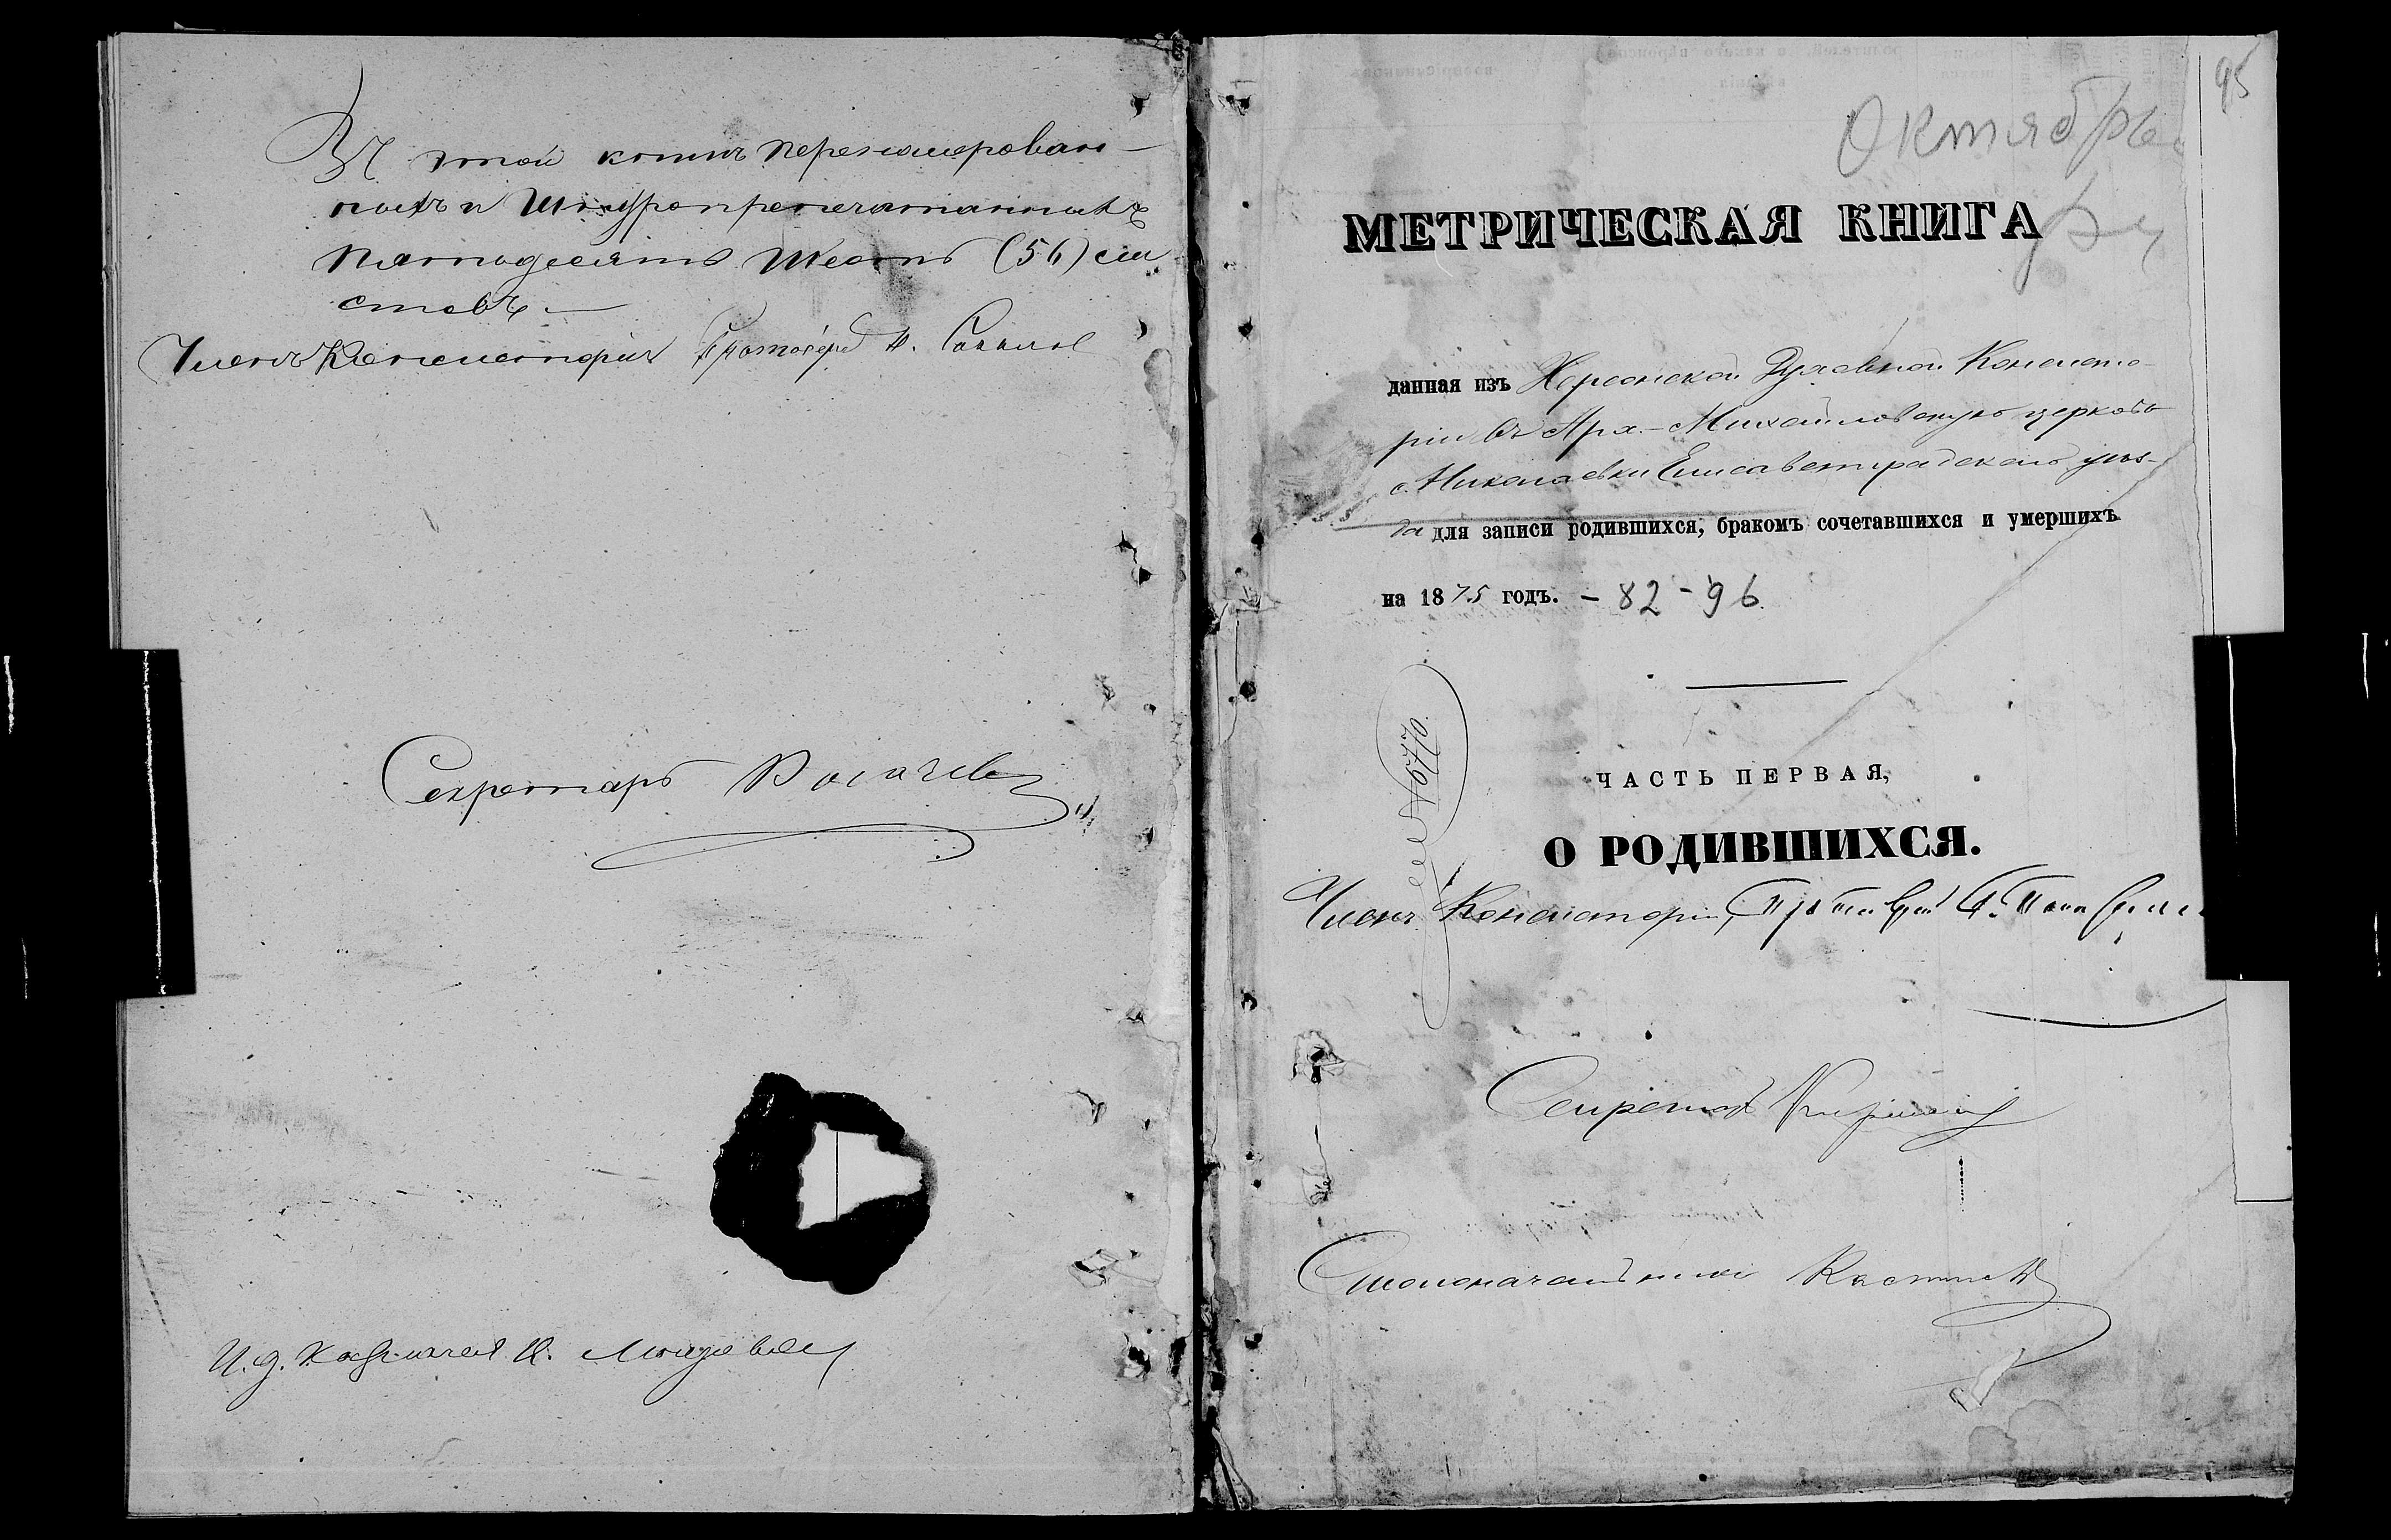 Въ этой книгѣ перенумерован-
ныхъ и шнуропрепечатанныхъ
пятьдесятъ шесть (56) ли
стовъ. —
Членъ Консисторіи Протоіерей
Секретарь
И. д. Казначея
95
Октябрь
МЕТРИЧЕСКАЯ КНИГА
данная изъ Херсонской Духовной Консисто-
ріи въ Арх.-Михайловскую церковь
с. Николаевки Елисаветградскаго уѣз-
да для записи родившихся, бракомъ сочетавшихся и умершихъ
на 1875 годъ. – 82 – 96
№ 6770.
ЧАСТЬ ПЕРВАЯ,
О РОДИВШИХСЯ.
Членъ Консисторіи, Протоіерей
Секретарь
Столоначальникъ